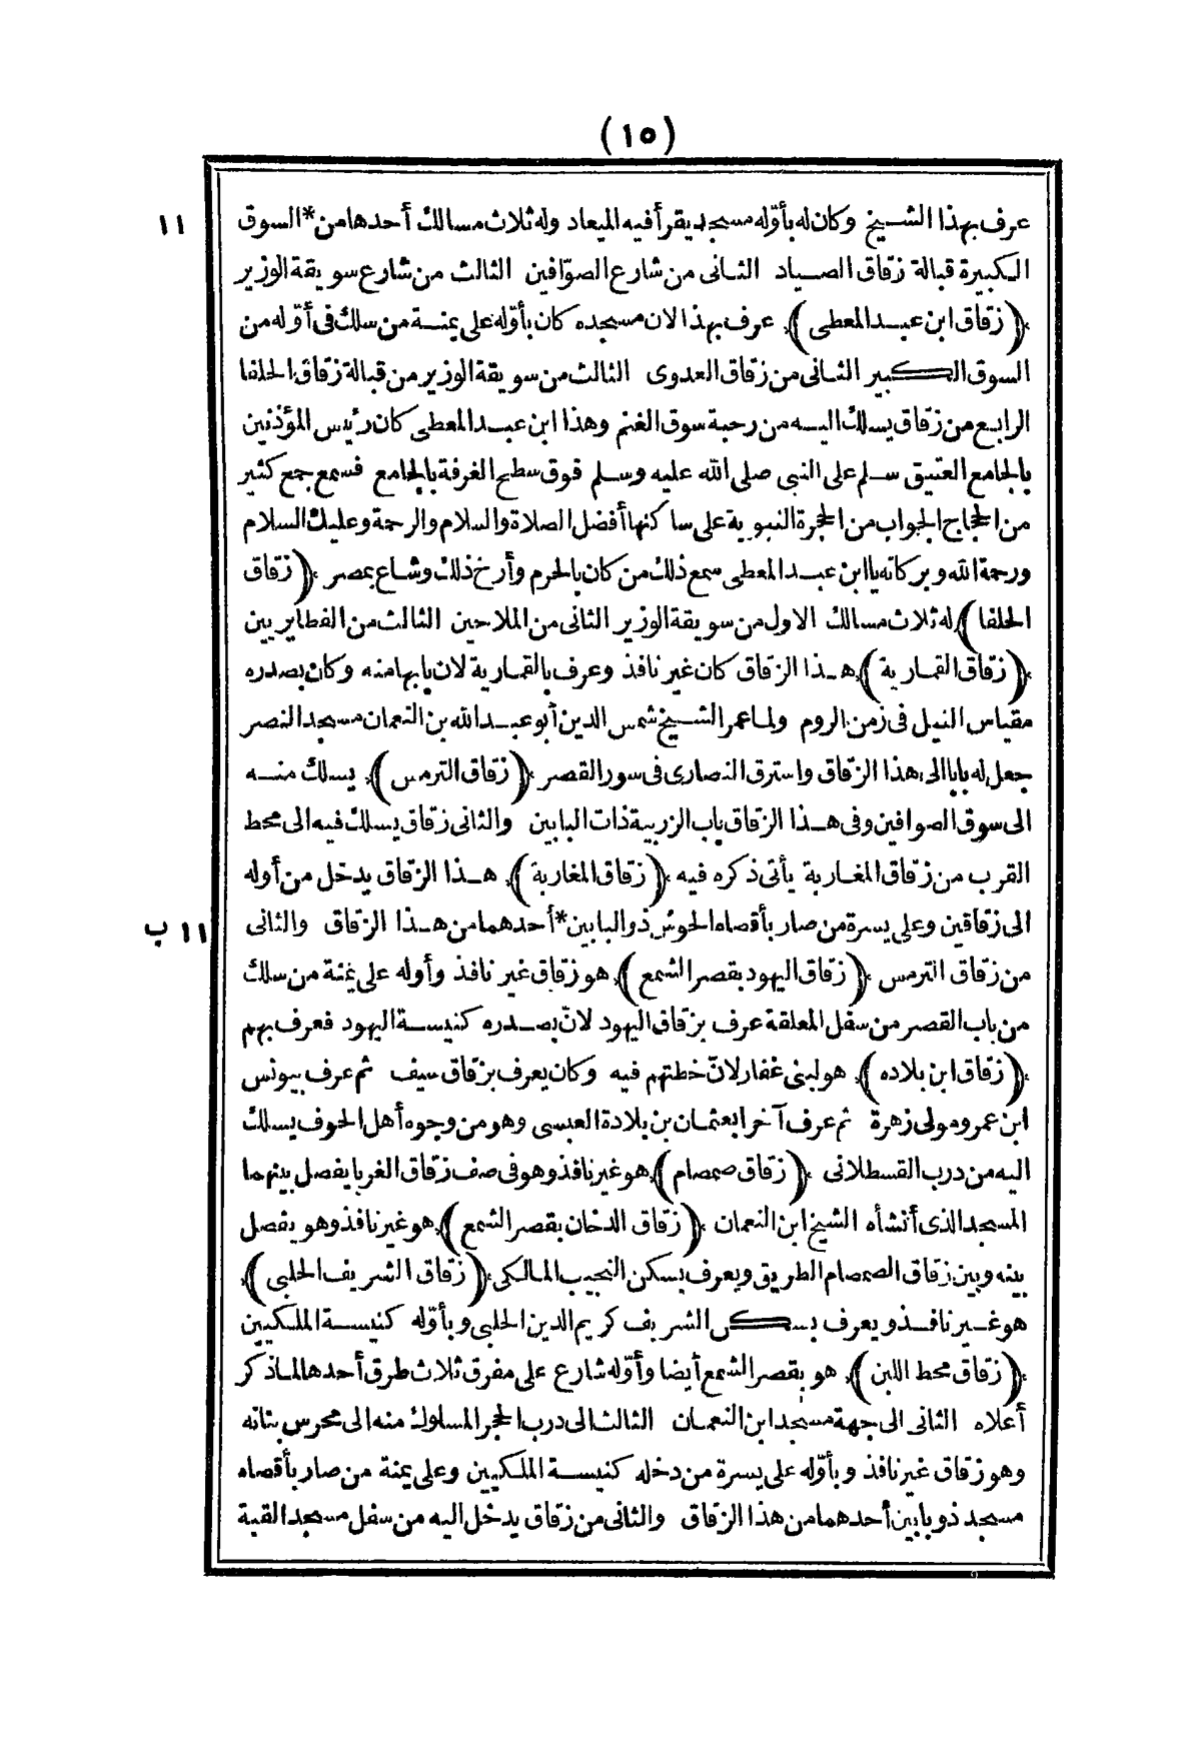 (١٥)
١١
عرف بهذا الشيخ وكان له بأوّله مسجد يقرأ فيه الميعاد وله ثلاث مسالك أحدها من *السوق
الكبيرة قبالة زقاق الصياد الثانى من شارع الصوّافين الثالث من شارع سويقة الوزير
(زقاق ابن عبد المعطى) عرف بهذا لان مسجده كان بأوّله على يمنة من سلك فى أوّله من
السوق الكبير الثانى من زقاق العدوى الثالث من سويقة الوزير من قبالة زقاق الحلفا
الرابع من زقاق يسلك اليه من رحبة سوق الغنم وهذا ابن عبد المعطى كان رئيس المؤذنين
بالجامع العتيق سلم على النبى صلى الله عليه وسلم فوق سطح الغرفة بالجامع فسمع جمع كثير
من الحجاج الجواب من الحجرة النبوية على ساكنها أفضل الصلاة والسلام والرحمة وعليك السلام
ورحمة الله وبركاته يا ابن عبد المعطى سمع ذلك من كان بالحرم وأرخ ذلك وشاع بمصر (زقاق
الحلفا) له ثلاث مسالك الاول من سويقة الوزير الثانى من الملاحين الثالث من الفطايريين
(زقاق القمارية) هذا الزقاق كان غير نافذ وعرف بالقمارية لان بابها منه وكان بصدره
مقياس النيل فى زمن الروم ولما عمر الشيخ شمس الدين أبو عبد الله بن النعمان مسجد النصر
جعل له بابا الى هذا الزقاق واسترق النصارى فى سور القصر (زقاق الترمس) يسلك منه
الى سوق الصوافين وفى هذا الزقاق باب الزريبة ذات البابين والثانى زقاق يسلك فيه الى محط
القرب من زقاق المغاربة يأتى ذكره فيه (زقاق المغاربة) هذا الزقاق يدخل من أوله
الى زقاقين وعلى يسرة من صار بأقصاه الحوش ذو البابين *أحدهما من هذا الزقاق والثانى
١١ ب
من زقاق الترمس (زقاق اليهود بقصر الشمع) هو زقاق غير نافذ وأوله على يمنة من سلك
من باب القصر من سفل المعلقة عرف بزقاق اليهود لانّ بصدره كنيسة اليهود فعرف بهم
(زقاق ابن بلاده) هو لبنى غفار لانّ خطتهم فيه وكان يعرف بزقاق سيف ثم عرف بيونس
ابن عمرو مولى زهرة ثم عرف آخرا بعثمان بن بلادة العبسى وهو من وجوه أهل الحوف يسلك
اليه من درب القسطلانى (زقاق صمصام) هو غير نافذ وهو فى صف زقاق الغربا يفصل بينهما
المسجد الذى أنشأه الشيخ ابن النعمان (زقاق الدخان بقصر الشمع) هو غير نافذ وهو يفصل
بينه وبين زقاق الصمصام الطريق ويعرف بسكن النجيب المالكى (زقاق الشريف الحلبى)
هو غير نافذ ويعرف بسكن الشريف كريم الدين الحلبى وبأوّله كنيسة الملكيين
(زقاق محط اللبن) هو بقصر الشمع أيضا وأوّله شارع على مفرق ثلاث طرق أحدها لما ذكر
أعلاه الثانى الى جهة مسجد ابن النعمان الثالث الى درب الحجر المسلوك منه الى محرس بنانه
وهو زقاق غير نافذ وبأوّله على يسرة من دخله كنيسة الملكيين وعلى يمنة من صار بأقصاه
مسجد ذو بابين أحدهما من هذا الزقاق والثانى من زقاق يدخل اليه من سفل مسجد القبة